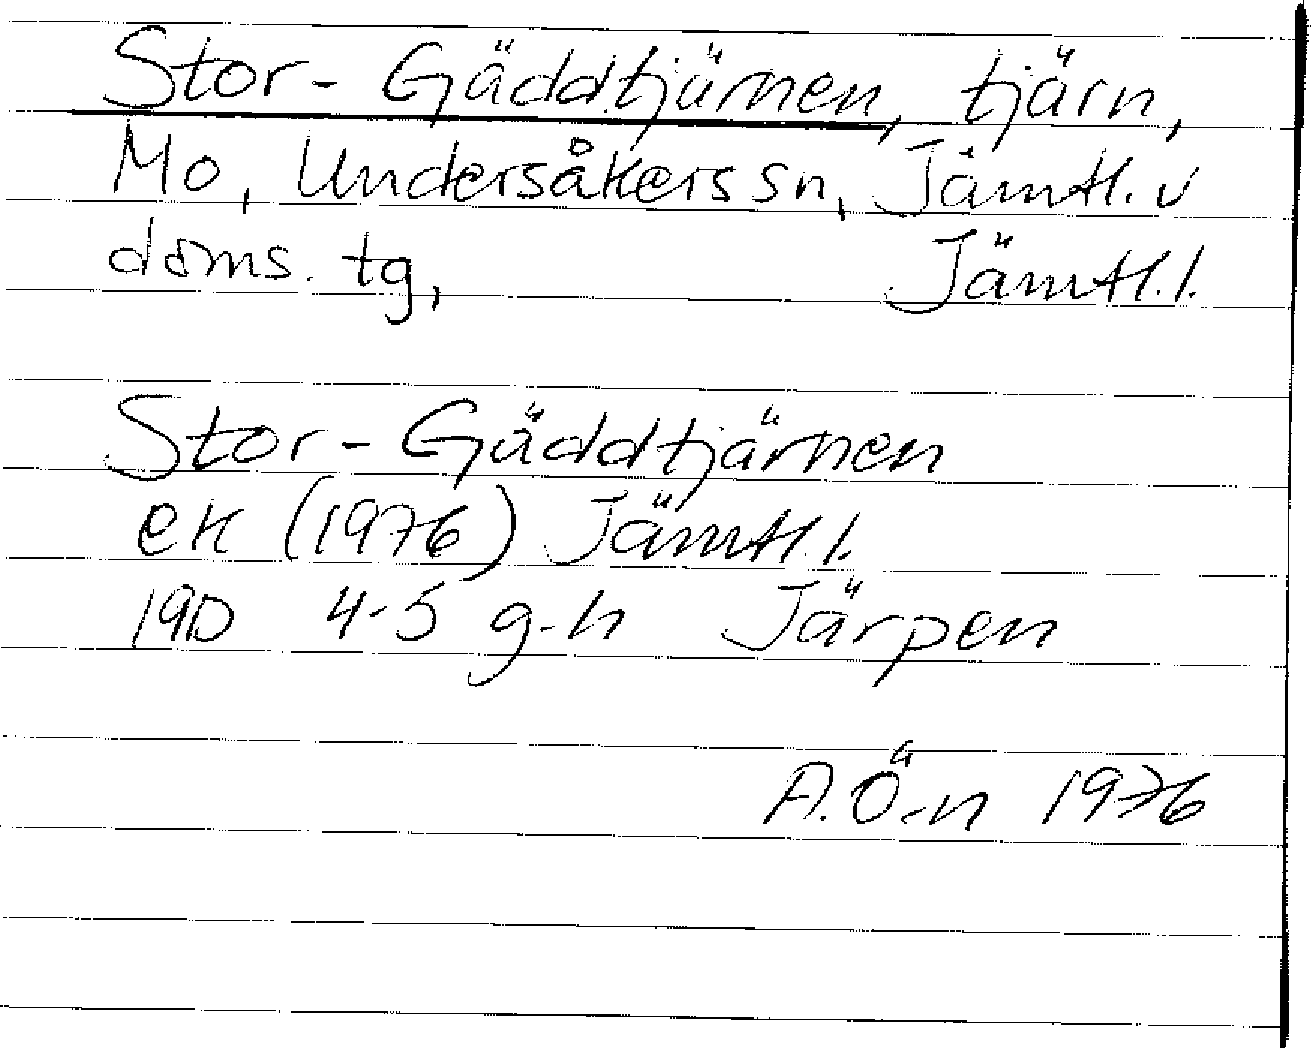 Stor-Gäddtjärnen, tjärn,
Mo, Undersåkers sn, Jämtl. v
doms. tg, Jämtl. l.
Stor-Gäddtjärnen
ek (1976) Jämtl. l.
19D 4-5 g-h Järpen
A.Ö-n 1976